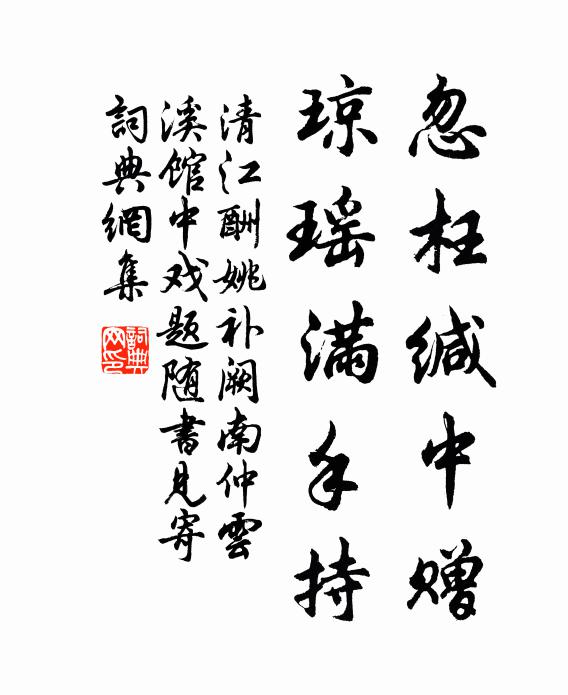 忽枉缄中赠
琼瑶满手持
清江酬姚补阙南仲雲
溪馆中戏题随書见寄
詞典網集
詞典网印